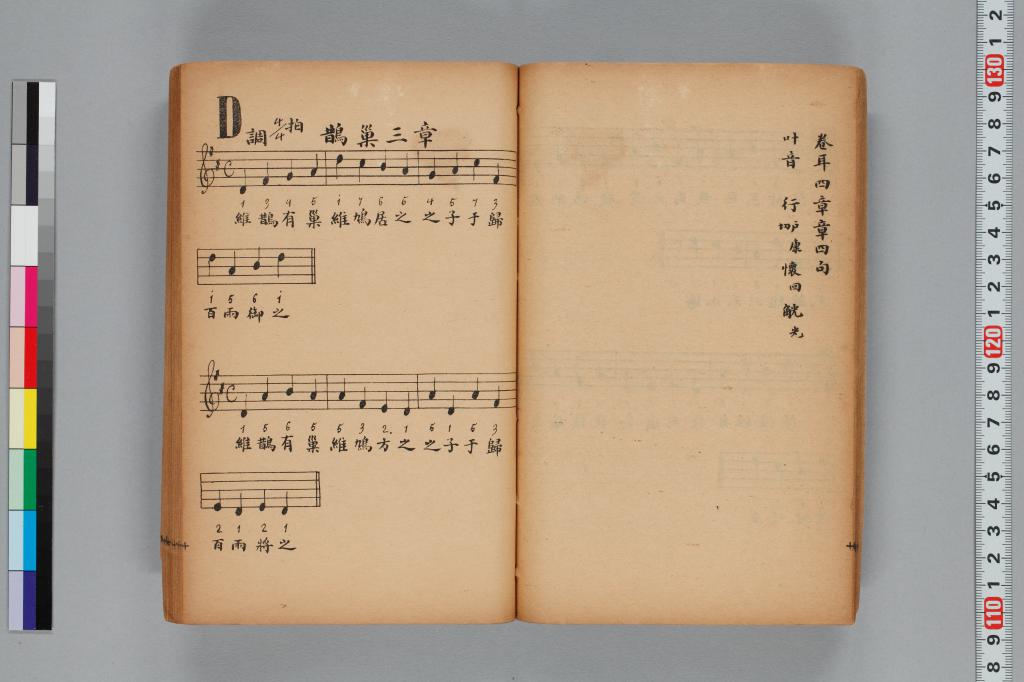 D調 4/4拍 鵲巢三章
1 3 4 5 i 7 6 5 4 5 7 3
維鵲有巢維鳩居之之子于歸
i 5 6 i
百兩御之
1 5 6 5 5 3 2 1 5 1 5 3
維鵲有巢維鳩方之之子于歸
2 1 2 1
百兩將之
卷耳四章章四句
叶音 行戶康切 懷回 觥光
130
120
110